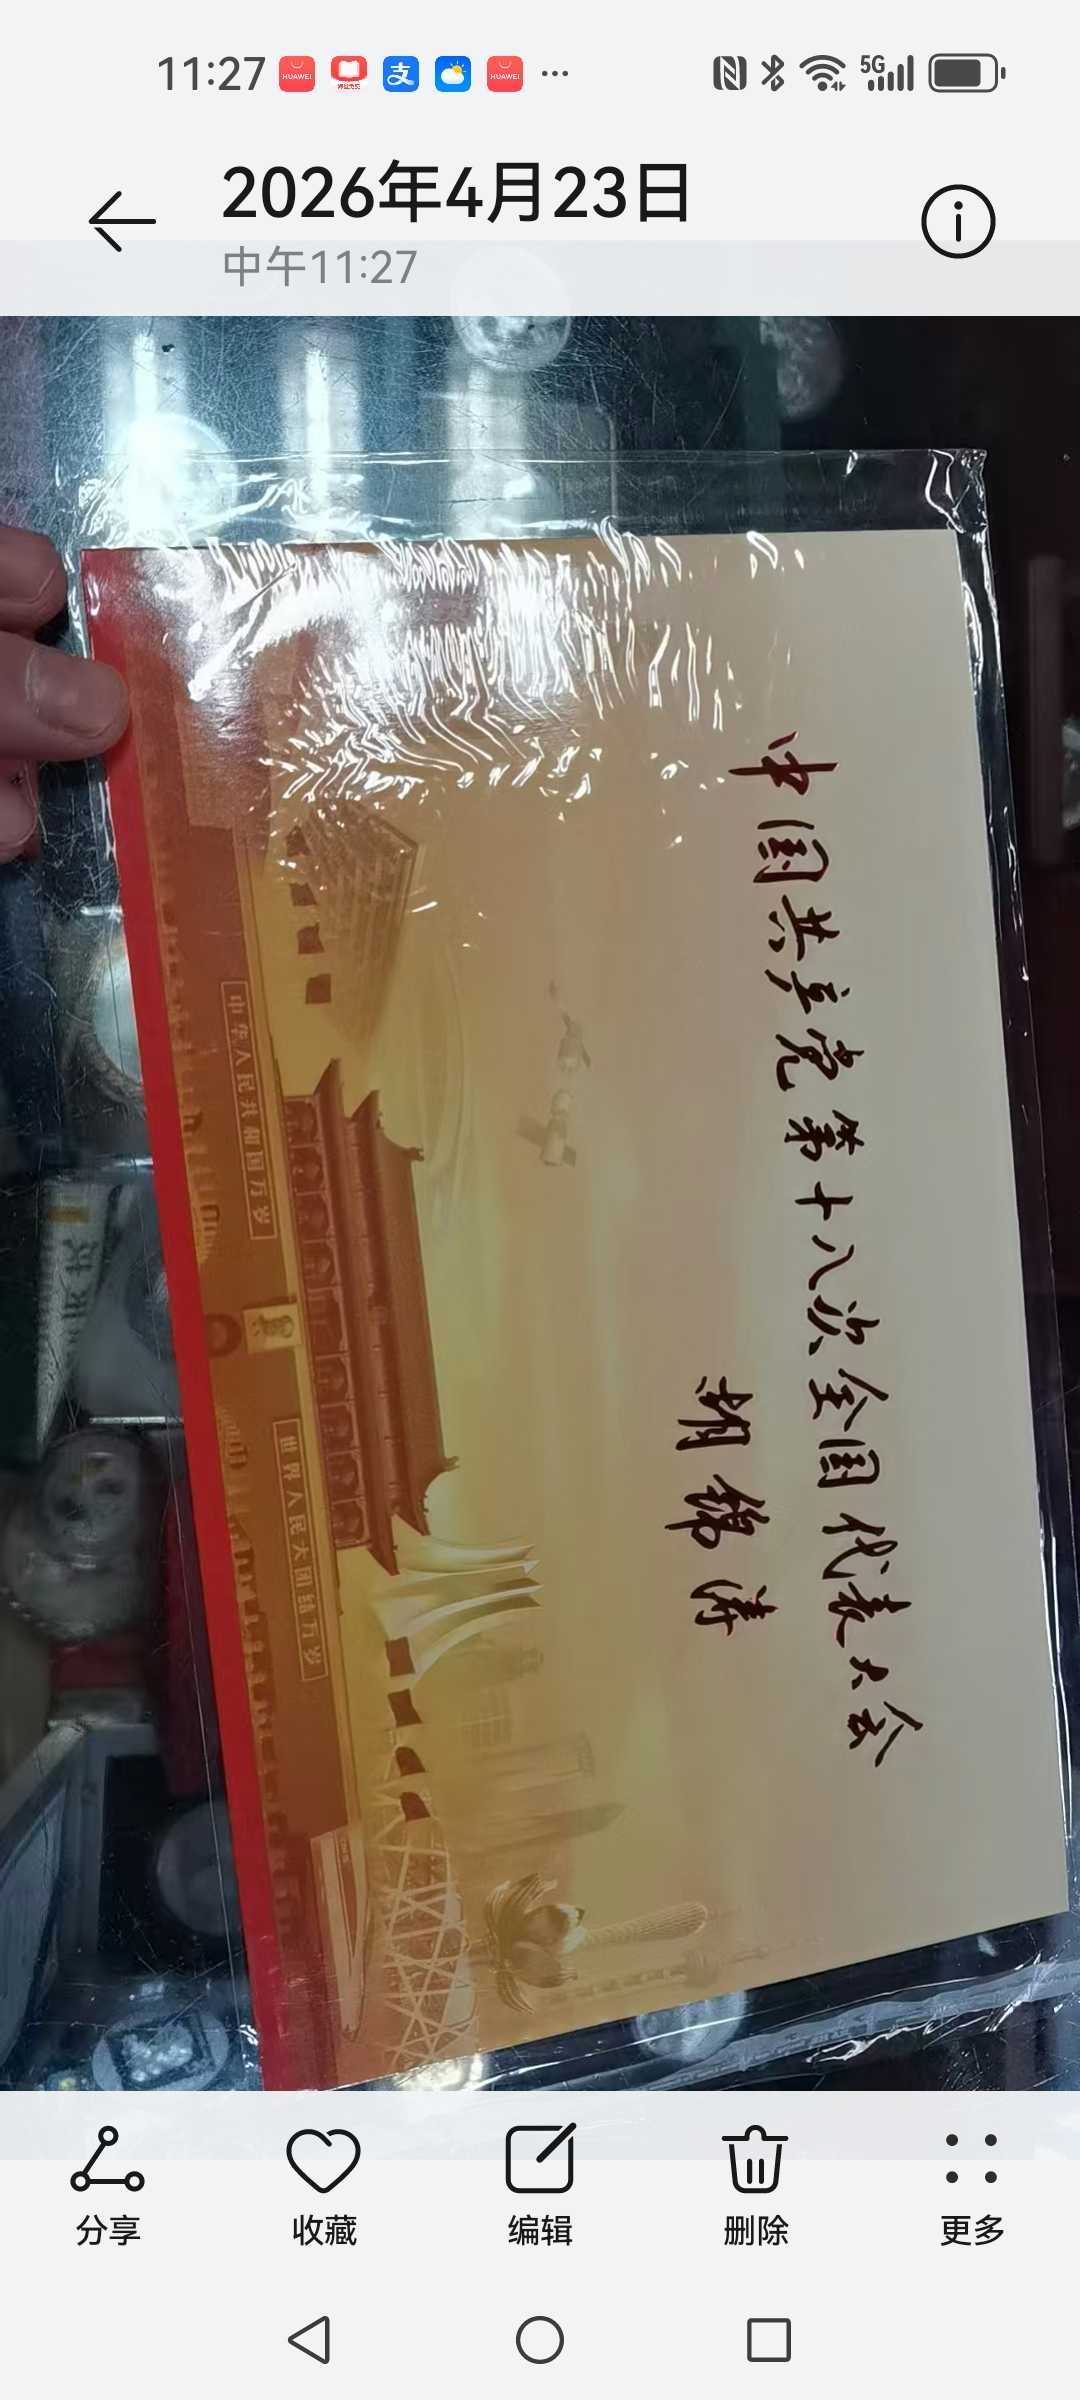 11:27
HUAWEI
HUAWEI
5G
2026年4月23日
中午11:27
中国共产党第十八次全国代表大会
胡锦涛
中华人民共和国万岁
世界人民大团结万岁
分享
收藏
编辑
删除
更多